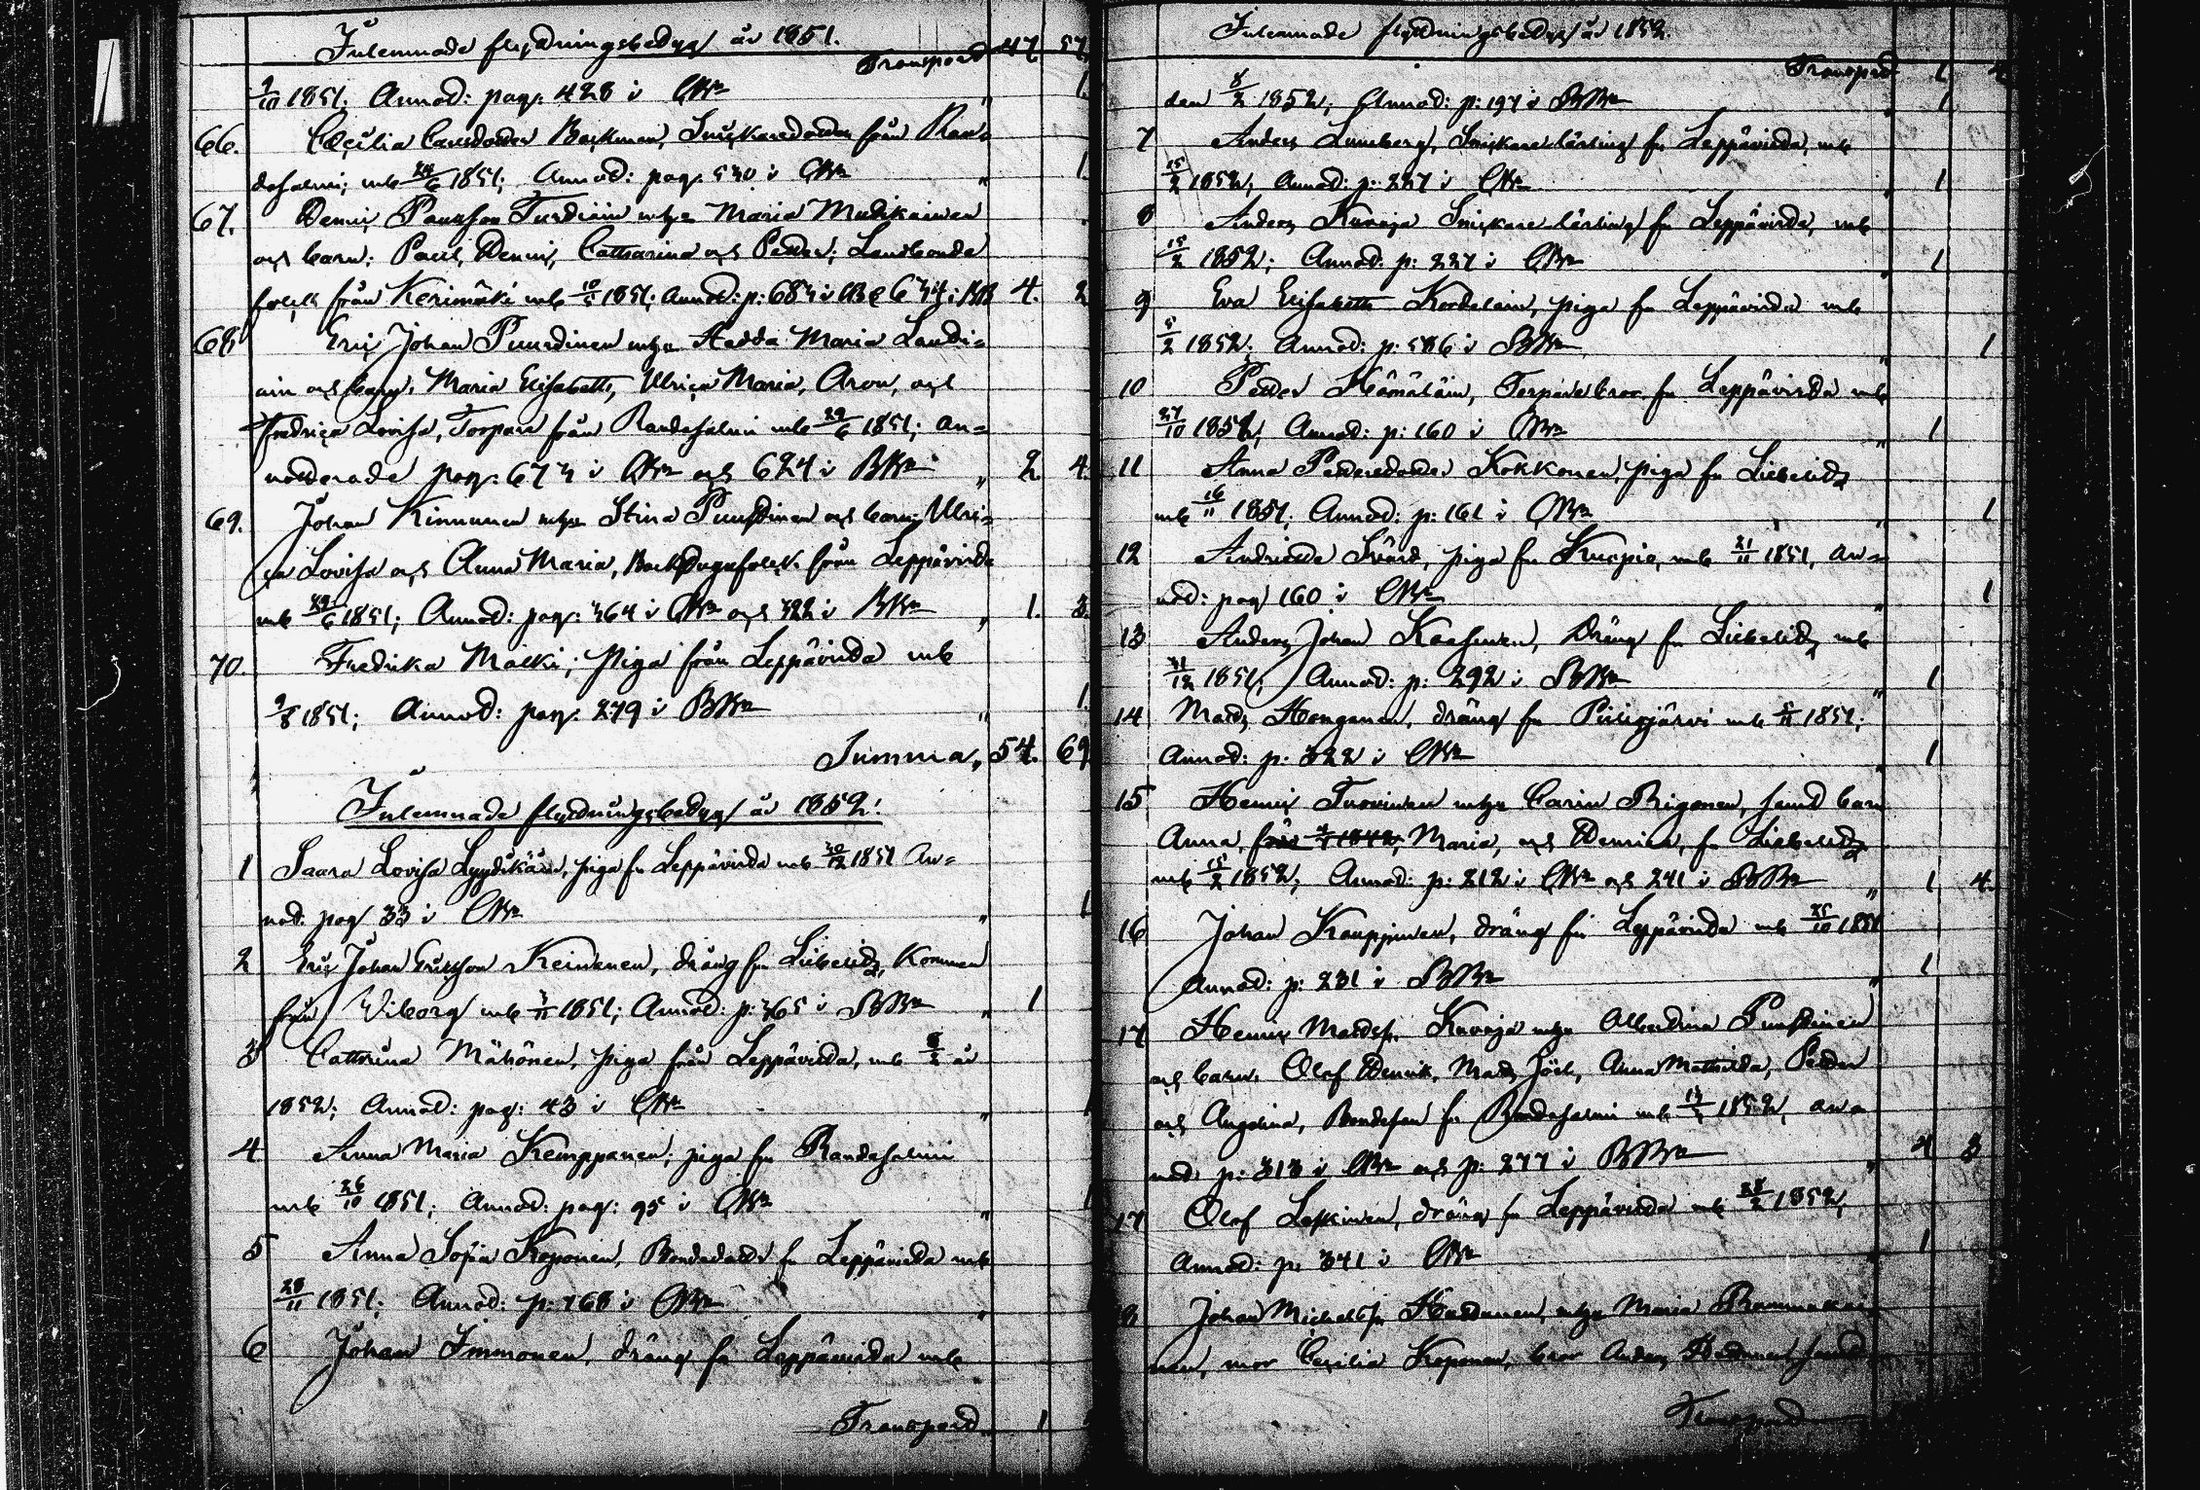 Inlemnade flyttningsbetyg år 1851.
Transport 47. 57.
9/10 1851; Annot: pag: 428 i 1.
66. Cecilia Carlsdotter Backman, från Ran-
dasalmi; mb 24/6 1851; Annot: pag. 530 i " 1
67. Henric Paulsson Turdiain mhu Maria Mudikainen
och barn; Paul, Henric, Catharina och Petter; Landbonde
folck från Kerimäki mb 10/5 1851; Annot: p: 683 i 634 i 4. 2
68 Eric Johan Puurdinen mhu Hedda Maria Laudi-
ain och barn, Maria Elisabeth, Ulrica Maria, Aron, och
Fredrica Lovisa, Torpare från Randasalmi mb 29/6 1851; an-
notterade pag. 673 i och 624 i " 2 4.
69. Johan Kinnunen mhu Stina Puustinen och barn; Ulri-
ca Lovisa och Anna Maria, från Leppävirda
mb 29/6 1851; Annot: pag. 364 i och 322 i " 1. 3.
70. Fredrika Malki; Piga från Leppävirda mb
9/8 1851; Annot: pag. 279 i " 1.
Summa, 54. 69
Inlemnade flyttningsbetyg år 1852.
1 Saara Lovisa Lyydikäin, piga fr Leppävirda mb 30/12 1851 An-
not: pag 33 i " 1
2 Eric Johan Ericsson Keinenen, dräng fr Libelidz, Kommen
från Viborg mb 3/11 1851; Annot: p: 365 i " 1
3 Cathrina Mähönen, piga från Leppävirda, mb 8/2 år
1852; Annot: pag: 43 i "
4 Anna Maria Kemppanen; piga fr Randasalmi
mb 26/10 1851; Annot: pag: 95 i " 1
5 Anna Sofia Koponen, Bondedotter fr Leppävirda mb
28/11 1851; Annot: p: 168 i "
6 Johan Immonen, dräng fr Leppävirda mb
Transport 1
Inlemnade flyttningsbetyg år 1852.
Transport 1
den 8/2 1852; Annot: p: 197 i 1
7 Anders Luneberg, lärling fr Leppävirda, mb
15/2 1852; Annot: p: 227 i " 1
8 Anders Kuroja lärling fr Leppävirda, mb
15/2 1852; Annot: p: 227 i " 1
9 Eva Elisabeth Kordelain, piga fr Leppävirda mb
5/2 1852; Annot: p: 586 i " 1
10 Petter Hämäläin, Torpare fr Leppävirda mb
27/10 1851; Annot: p: 160 i " 1
11 Anna Pettersdotter Kokkonen, piga fr Libelidz
mb 16/11 1851; Annot: p: 161 i " 1
12 Andriette Svärd, piga fr Kuopio, mb 21/11 1851, an-
not: pag 160 i " 1
13 Anders Johan Kaasinen, Dräng fr Libelidz mb
31/12 1851; Annot: p: 292 i " 1
14 Matts Honganen, dräng fr Pielisjärvi mb 5/11 1851;
Annot: p: 322 i " 1
15 Henric Turvinen mhu Carin Riganen, samt barn
Anna, Maria, och Henrica, fr Libelidz
mb 15/2 1852; Annot: p: 212 i och 241 i " 1 4.
16 Johan Kauppinen, dräng fr Leppävirda mb 25/10 1851
Annot: p: 231 i " 1
17 Henric Mattsson Kuroja mhu Albertina Puustinen
och barn. Olof Henrik, Matts Joel, Anna Mathilda, Petter
och Angelina, fr Randasalmi mb 1852, an-
not: p: 313 i och p: 277 i " 4 3
17 Olof Leskinen, dräng fr Leppävirda mb 28/2 1852,
Annot: p: 341 i " 1
8 Johan Michelss: mhu Maria
nen, mor Cecilia Koponen, bror Anders samt
Transport